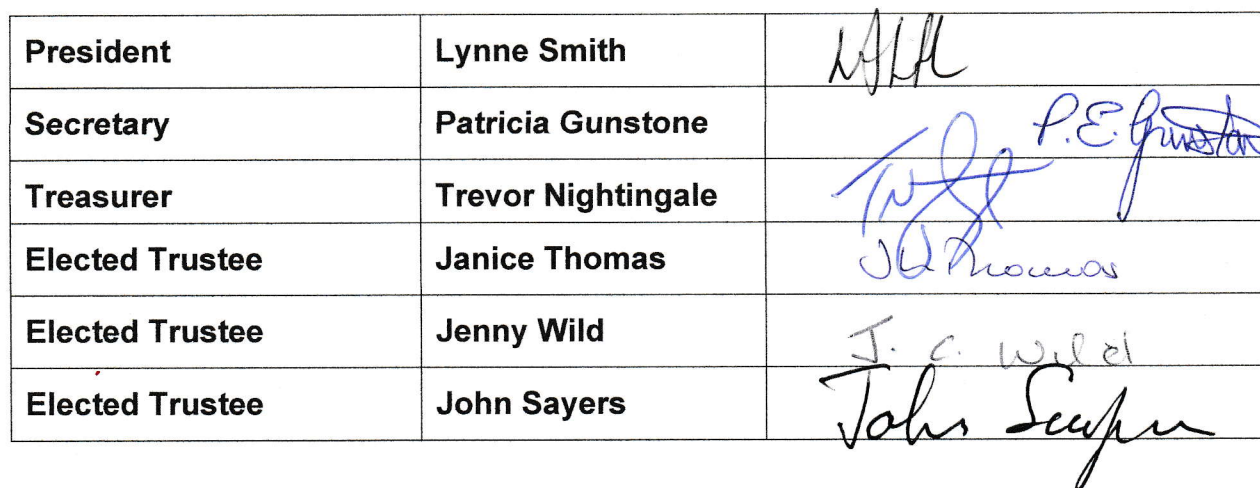 President Lynne Smith
Secretary Patricia Gunstone P.E. Gunston
Treasurer Trevor Nightingale
Elected Trustee Janice Thomas Thomas
Elected Trustee Jenny Wild J. C. Wild
Elected Trustee John Sayers John